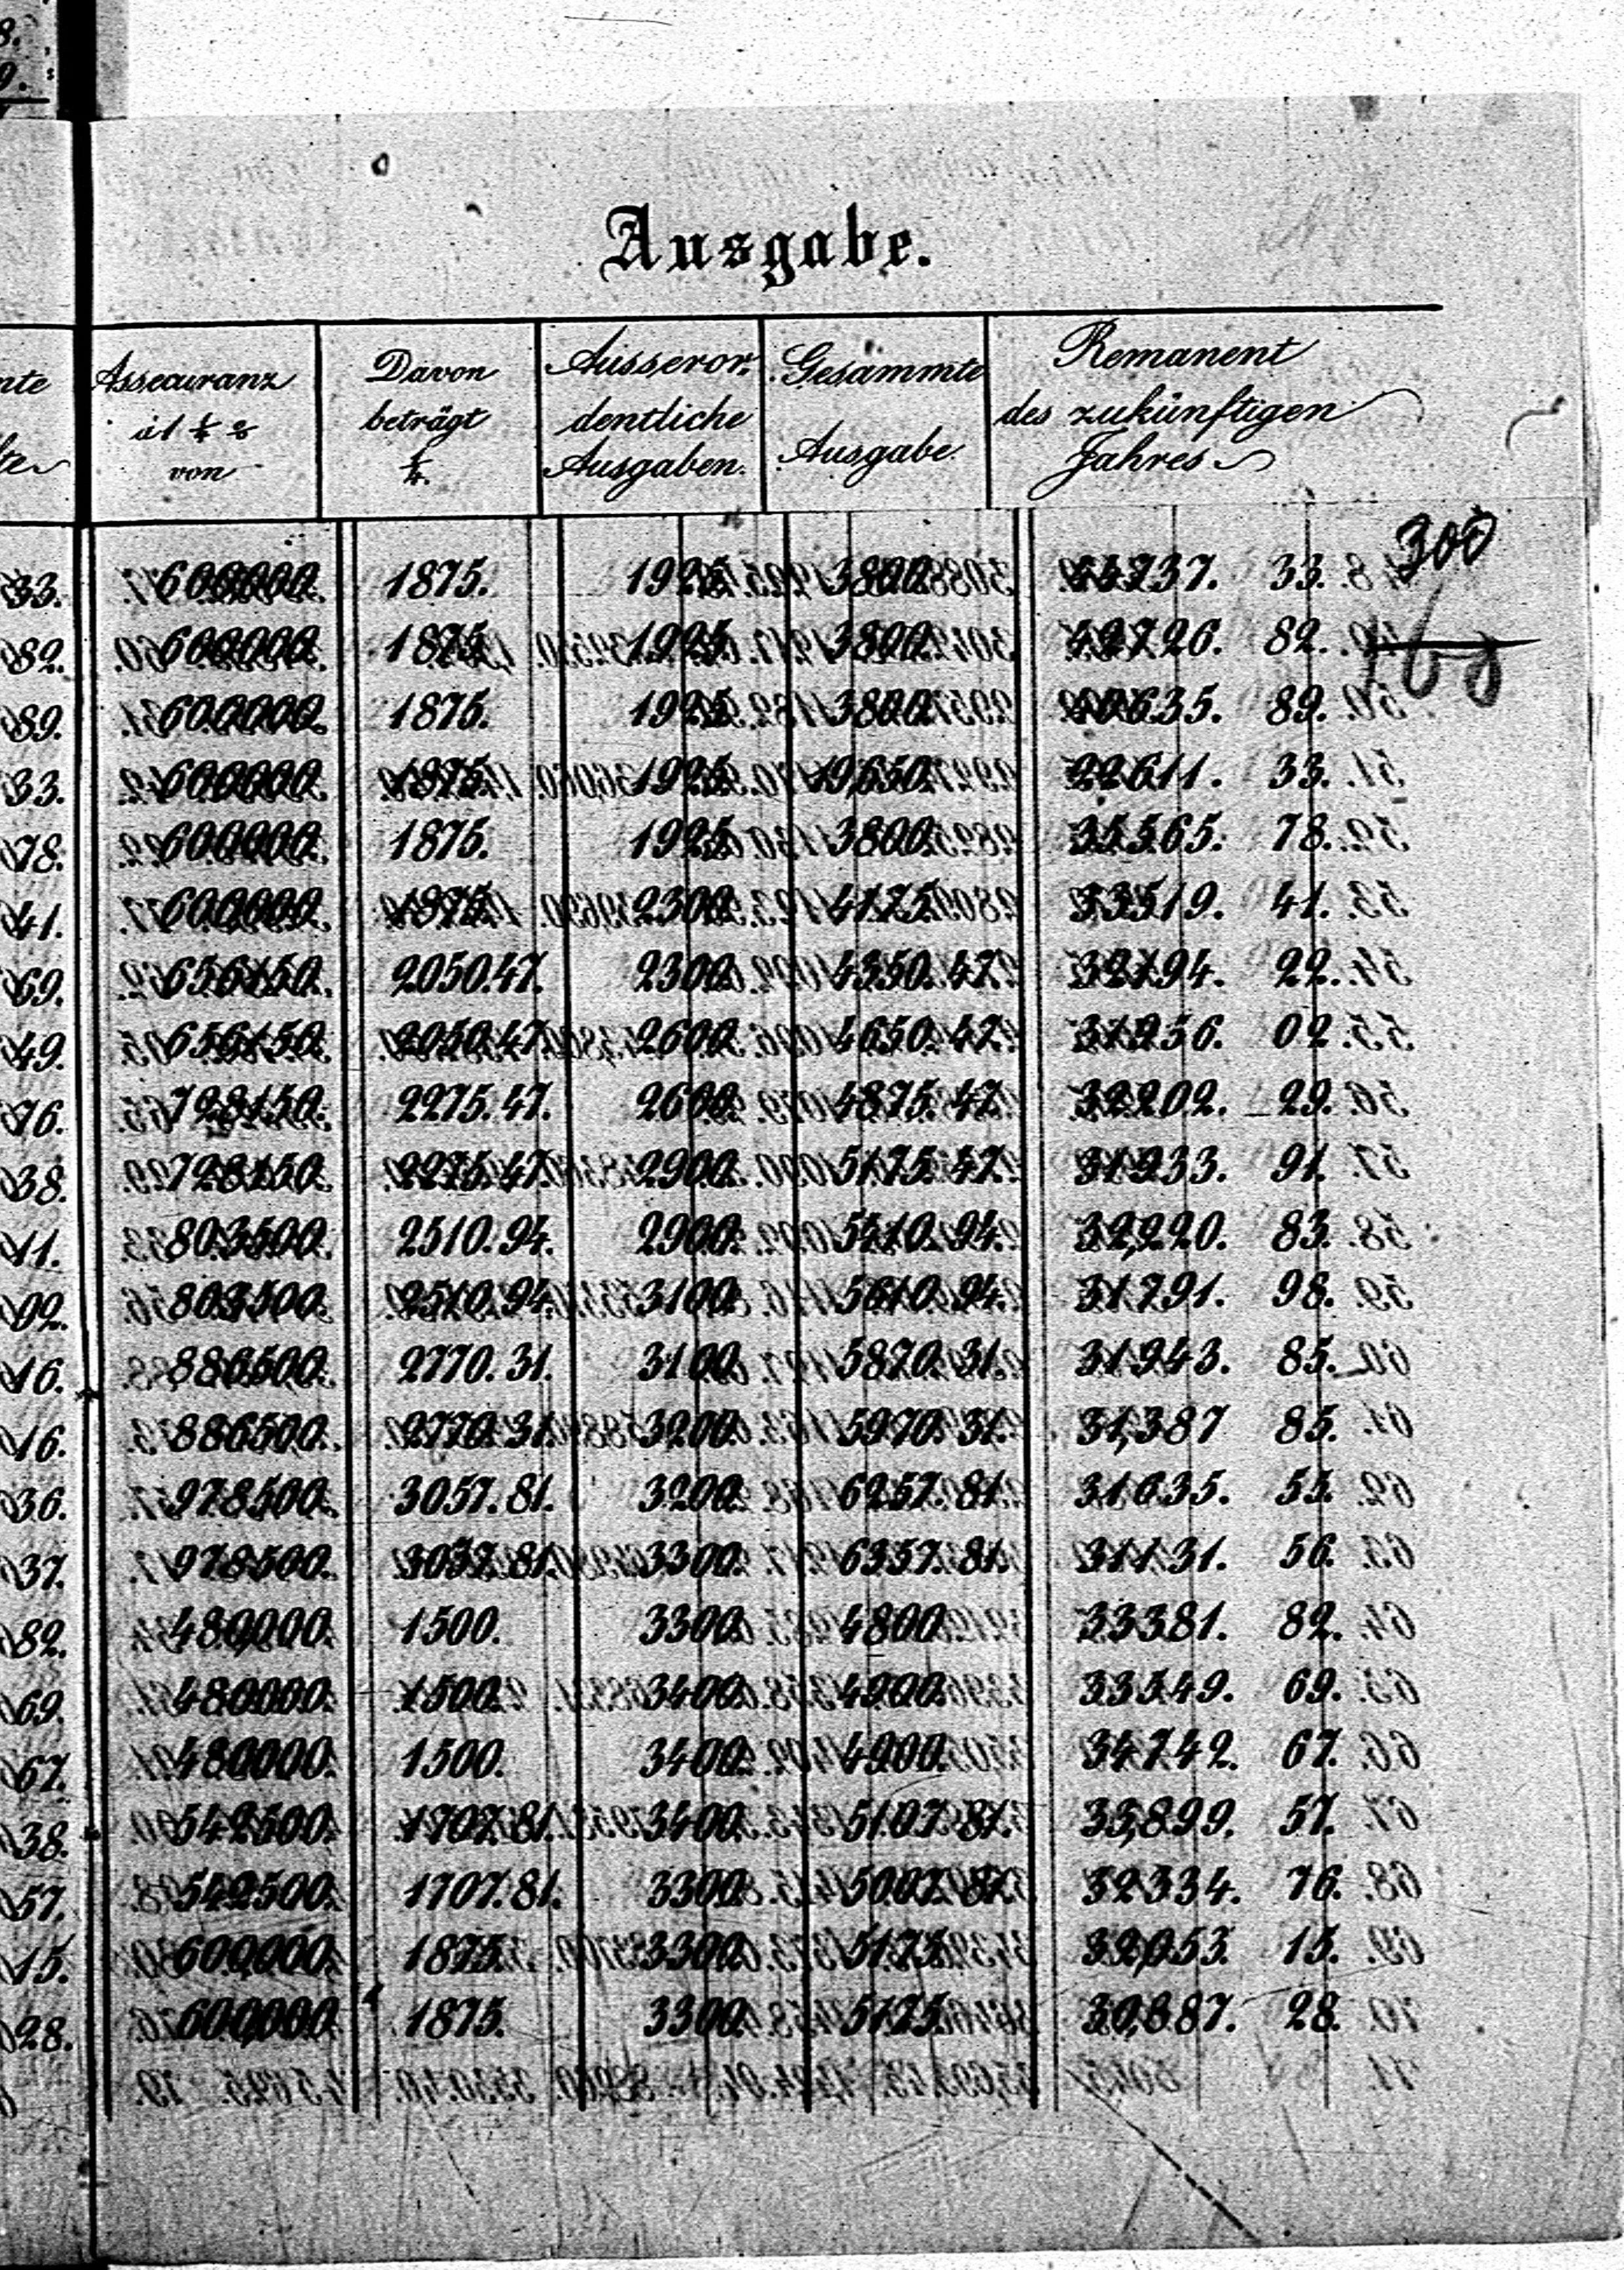 8.
9.
Ausgabe.
Assecuranz
à 1 ¼ %
von
Davon
beträgt
¼.
Ausseror,
dentliche
Ausgaben.
Gesammte
Ausgabe.
Remanent
des zukünftigen
Jahres
300
33. 600000. 1875. 1925. 3800. 37. 33.
82. 600000. 1875. 1925. 3800. 42726. 82.
89. 600000. 1875. 1925. 3800. 40635. 89.
33. 600000. 1875. 1925. 19,650. 22611. 33.
78. 600000. 1875. 1925. 3800. 35565. 78.
41. 600000. 1875. 2300. 4175. 33519. 41.
69. 656150. 2050.47. 2300. 4350.47. 22.
49. 656150. 2050.47. 2600. 4650.47. 02.
76. 728150. 2275.47. 2600. 4875.47. 32202. 29.
38. 728150. 2275.47. 2900. 5175.47. 31933. 91.
11. 803500. 2510.94. 2900. 5410.94. 32,220. 83.
92. 803500. 2510.94. 3100. 5610.94. 31791. 98.
16. 886500. 2770.31. 3100. 5870.31. 31943. 85.
16. 886500. 2770.31. 3200. 5970.31. 31,387 85.
36. 978500. 3057.81. 3200. 6257.81. 31635. 55.
37. 978500. 3057.81. 3300. 6357.81. 31131. 56.
82. 480,000. 1500. 3300. 4800. 33381. 82.
69. 480000. 1500. 3400. 4900. 33549. 69.
67. 480000. 1500. 3400. 4900. 34742. 67.
38. 542500. 1707.81. 3400. 5107.81. 33,899. 57.
57. 542500. 1707.81. 3300. 5007.81. 32334. 76.
15. 600,000. 1875. 3300. 5175. 32,053. 15.
28. 600,000 1875. 3300. 5175. 30,887. 28.